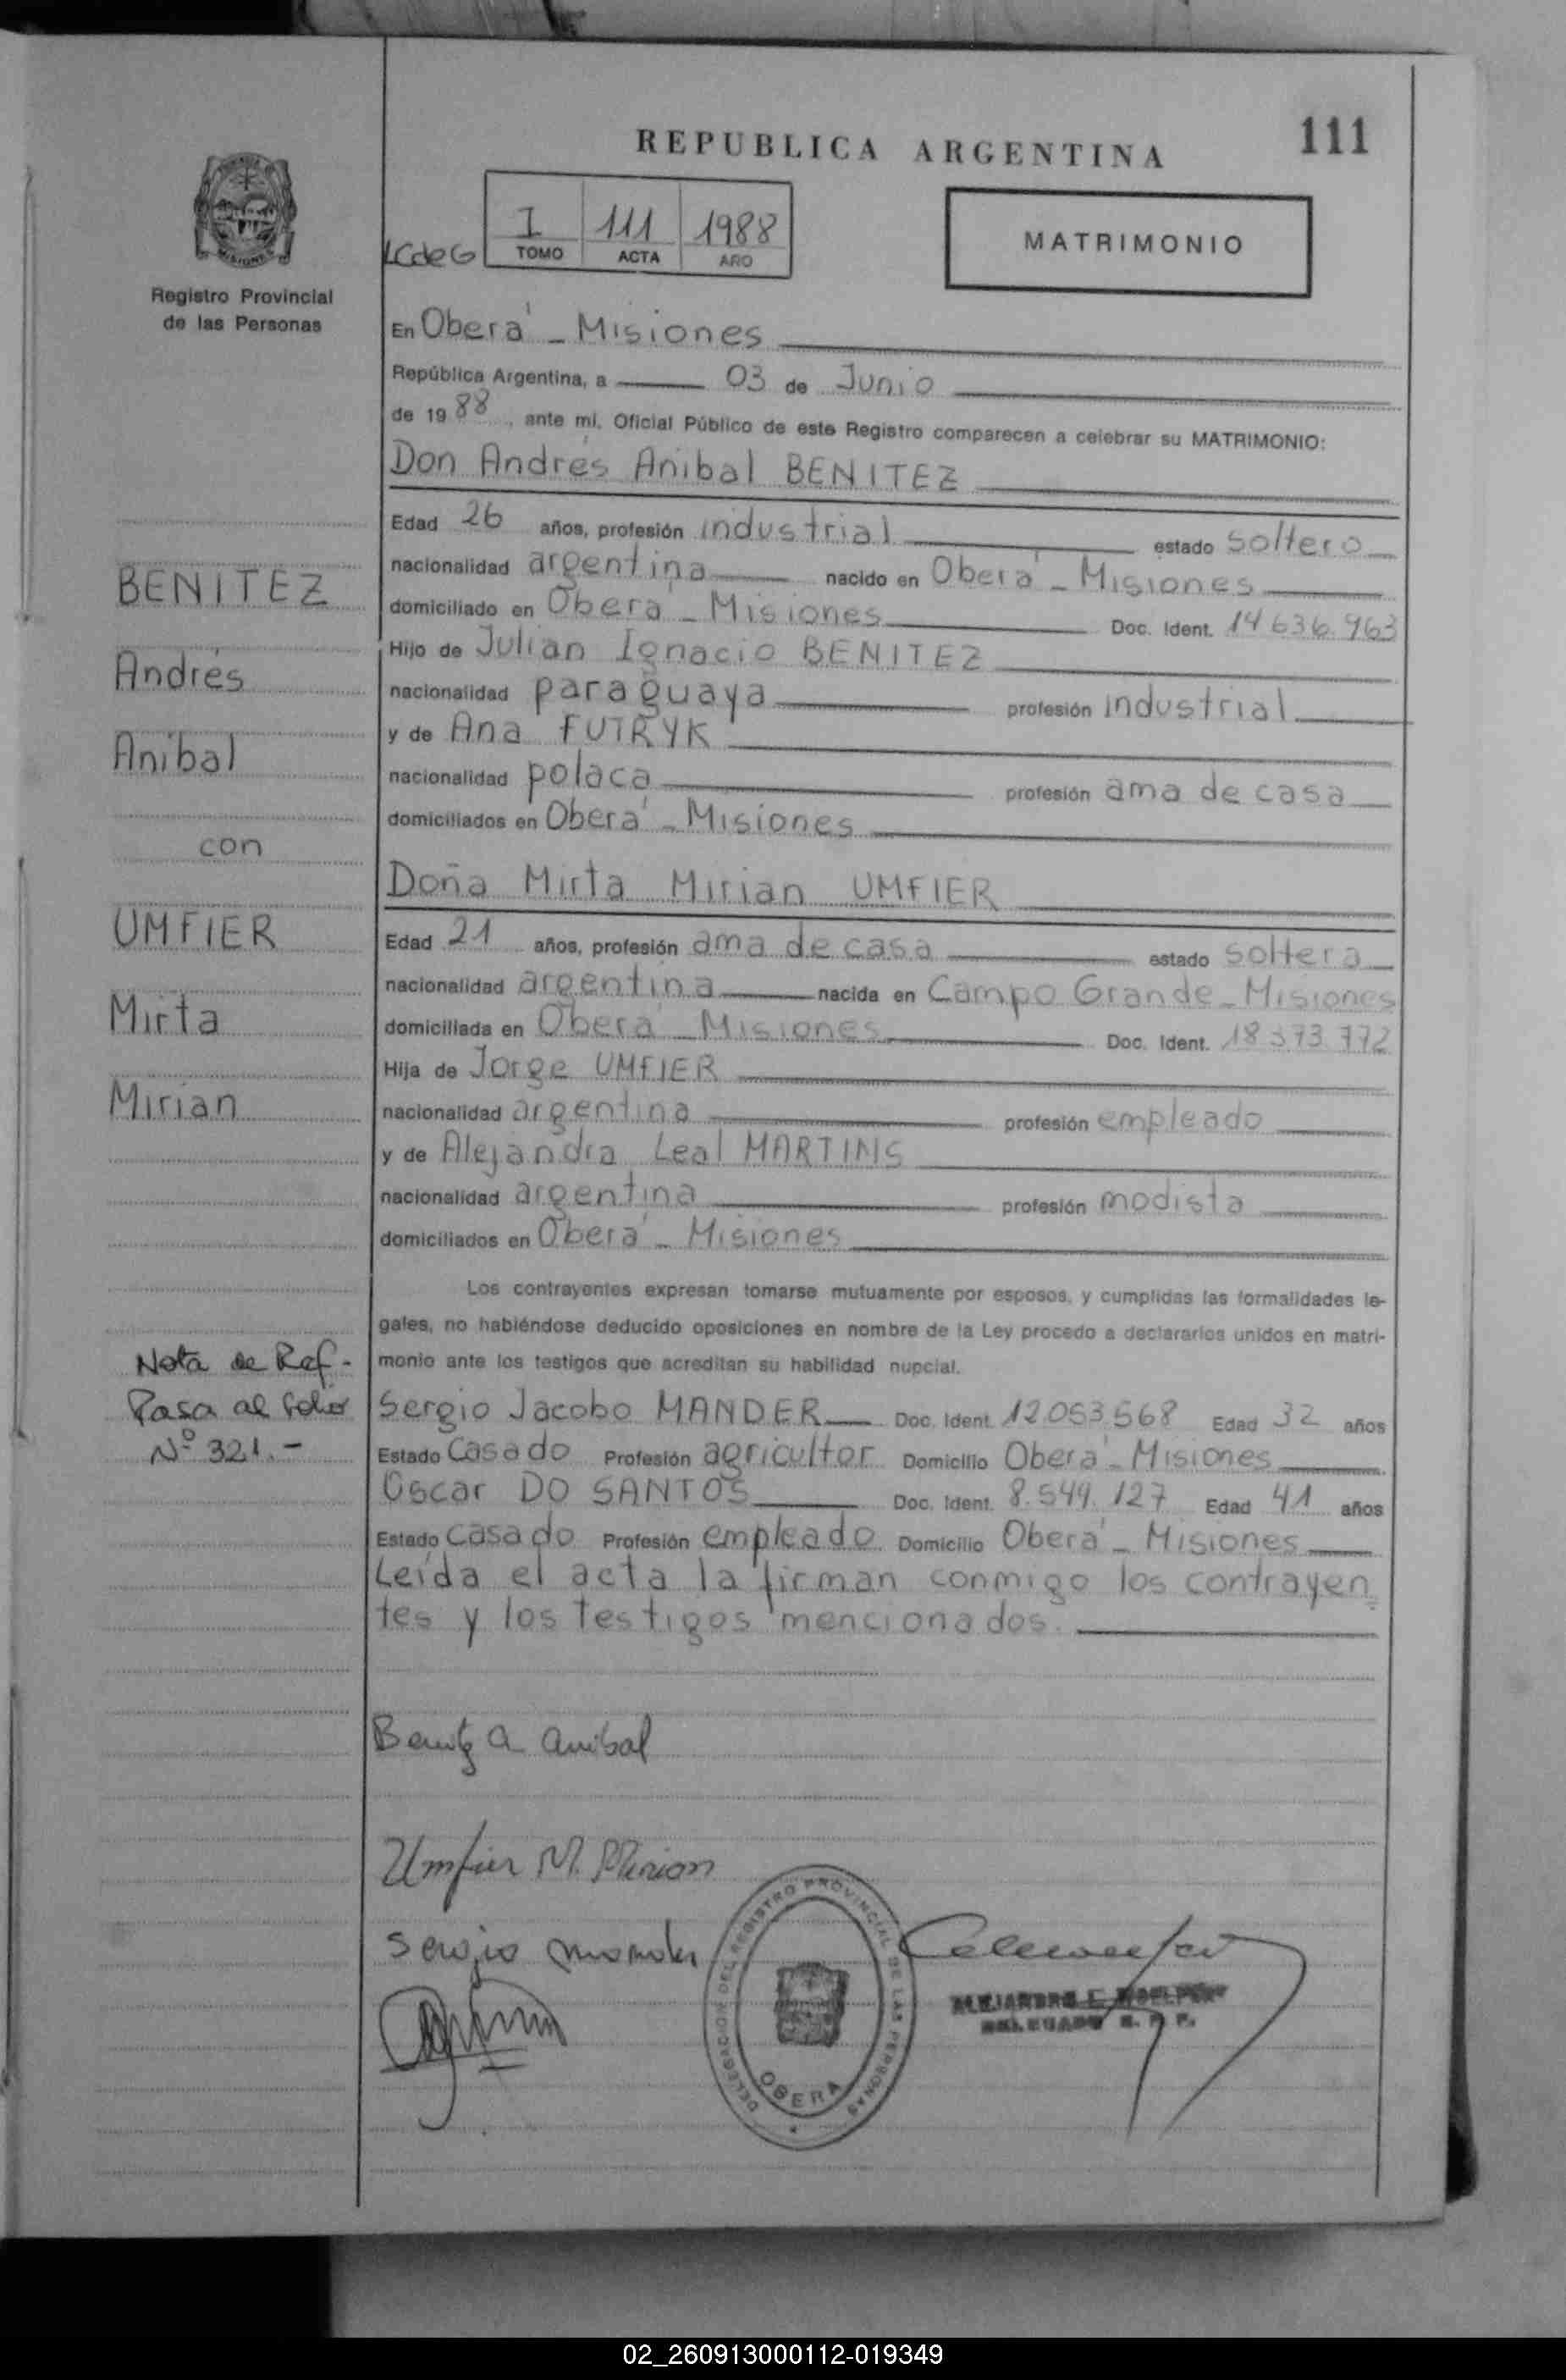 111
REPUBLICA ARGENTINA
I 111 1988
TOMO ACTA AÑO
MATRIMONIO
MISIONES
Registro Provincial
de las Personas
En Oberá - Misiones
República Argentina, a 03 de Junio
de 1988, ante mí, Oficial Público de este Registro comparecen a celebrar su MATRIMONIO:
Don Andrés Anibal BENITEZ
Edad 26 años, profesión industrial estado soltero
nacionalidad argentina nacido en Oberá - Misiones
domiciliado en Oberá - Misiones Doc. Ident. 14.636.963
Hijo de Julian Ignacio BENITEZ
nacionalidad paraguaya profesión industrial
y de Ana FUTRYK
nacionalidad polaca profesión ama de casa
domiciliados en Oberá - Misiones
Doña Mirta Mirian UMFIER
Edad 21 años, profesión ama de casa estado soltera
nacionalidad argentina nacida en Campo Grande - Misiones
domiciliada en Oberá - Misiones Doc. Ident. 18.373.772
Hija de Jorge UMFIER
nacionalidad argentina profesión empleado
y de Alejandra Leal MARTINS
nacionalidad argentina profesión modista
domiciliados en Oberá - Misiones
BENITEZ
Andrés
Anibal
con
UMFIER
Mirta
Mirian
Los contrayentes expresan tomarse mutuamente por esposos, y cumplidas las formalidades le-
gales, no habiéndose deducido oposiciones en nombre de la Ley procedo a declararlos unidos en matri-
monio ante los testigos que acreditan su habilidad nupcial.
Nota de Ref.-
Pasa al folio
Nº 321.-
Sergio Jacobo MANDER Doc. Ident. 12.053.568 Edad 32 años
Estado Casado Profesión agricultor Domicilio Oberá - Misiones
Oscar DO SANTOS Doc. Ident. 8.549.127 Edad 41 años
Estado Casado Profesión empleado Domicilio Oberá - Misiones
Leída el acta la firman conmigo los contrayen
tes y los testigos mencionados.
Benitez A Anibal
Umfier M. Mirian
Sergio Mander
DELEGACION DEL REGISTRO PROVINCIAL DE LAS PERSONAS
OBERA
02_260913000112-019349